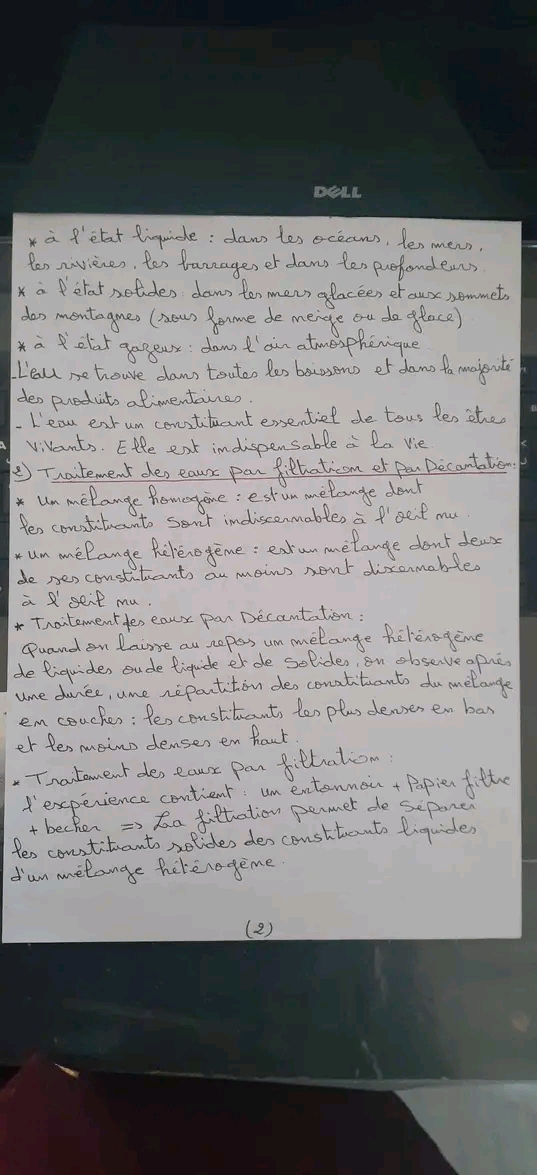 DELL
* à l'état liquide : dans les océans, les mers,
les rivières, les barrages et dans les profondeurs.
* à l'état solides. dans les mers glacées et aux sommets
des montagnes (sous forme de neige ou de glace)
* à l'état gazeux : dans l'air atmosphérique
- L'eau se trouve dans toutes les boissons et dans la majorité
des produits alimentaires.
- L'eau est un constituant essentiel de tous les êtres
vivants. Elle est indispensable à la vie
2) Traitement des eaux par filtration et par Décantation :
* Un mélange homogène : est un mélange dont
les constituants sont indiscernables à l'œil nu.
* un mélange hétérogène : est un mélange dont deux
de ses constituants au moins sont discernables
à l'œil nu.
* Traitement des eaux par Décantation :
Quand on laisse au repos un mélange hétérogène
de liquides ou de liquide et de solides, on observe après
une durée, une répartition des constituants du mélange
en couches : les constituants les plus denses en bas
et les moins denses en haut.
* Traitement des eaux par filtration :
l'expérience contient : un entonnoir + Papier filtre
+ becher => La filtration permet de séparer
les constituants solides des constituants liquides
d'un mélange hétérogène.
(2)